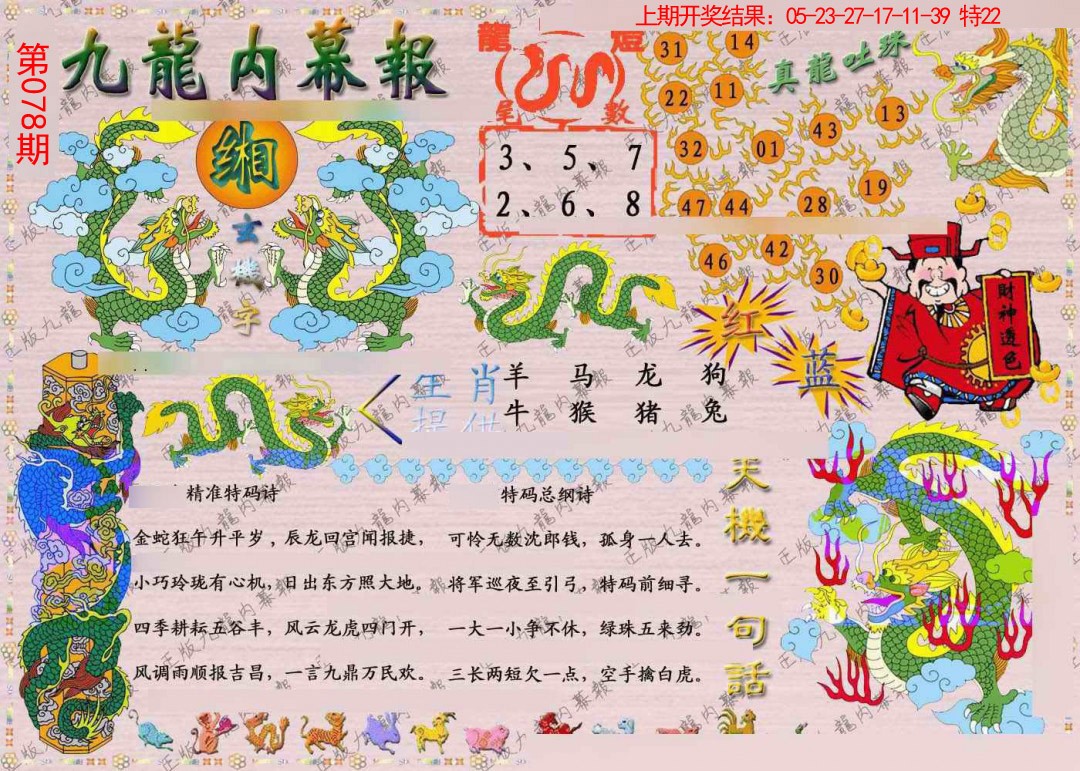 上期开奖结果：05-23-27-17-11-39 特22
第078期
九龍内幕報
缃
玄
機
字
龍 短
尾 數
3、5、7
2、6、8
真龍吐珠
31 14
22 11
13
32 01 43
19
47 44 28
46 42 30
红
蓝
財神透色
生肖
提供
羊 马 龙 狗
牛 猴 猪 兔
精准特码诗
金蛇狂午升平岁，辰龙回宫闻报捷，
小巧玲珑有心机，日出东方照大地。
四季耕耘五谷丰，风云龙虎四门开，
风调雨顺报吉昌，一言九鼎万民欢。
特码总纲诗
可怜无数沈郎钱，孤身一人去。
将军巡夜至引弓，特码前细寻。
一大一小争不休，绿珠五来劲。
三长两短欠一点，空手擒白虎。
天機一句話